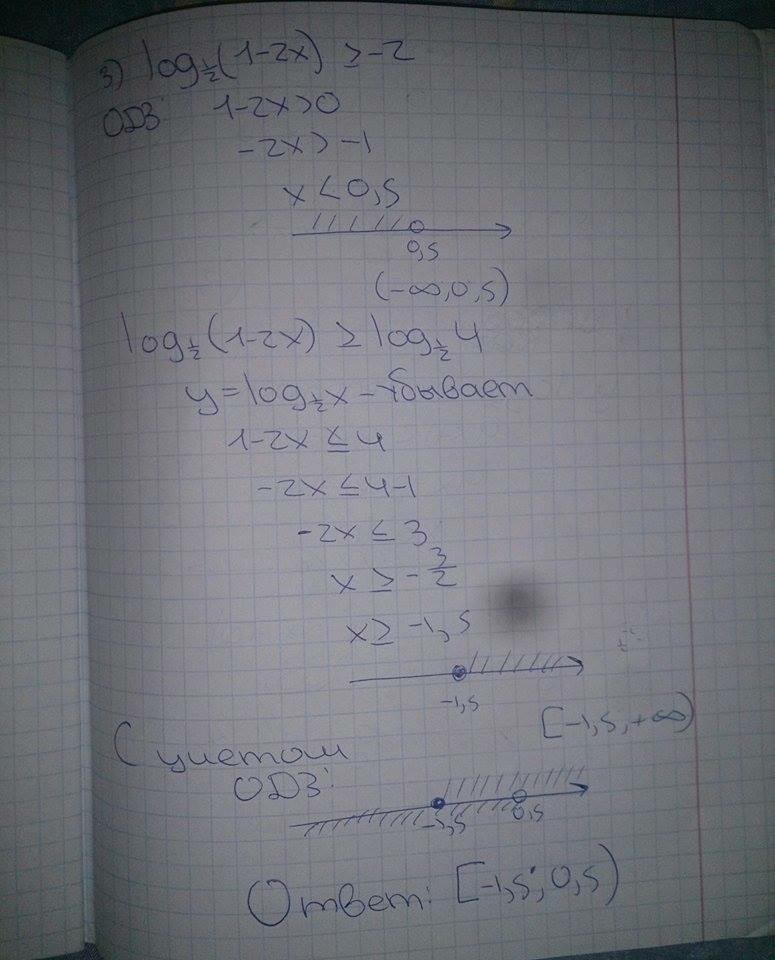 3) log½(1-2x) ≥ -2
ОДЗ 1-2x>0
-2x > -1
x < 0,5
0,5
(-∞,0,5)
log½(1-2x) ≥ log½4
y=log½x - убывает
1-2x ≤ 4
-2x ≤ 4-1
-2x ≤ 3
x ≥ -3/2
x ≥ -1,5
-1,5
[-1,5,+∞)
С учетом
ОДЗ:
-1,5 0,5
Ответ: [-1,5; 0,5)